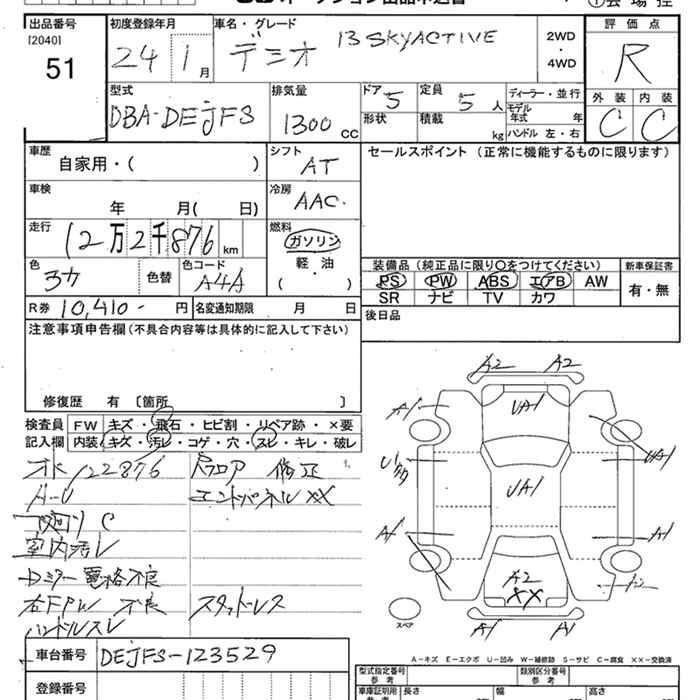 出品番号
[2040]
51
初度登録年月
24 1月
車名・グレード
デミオ 13 SKYACTIVE
2WD
・
4WD
評価点
R
外装 内装
C C
型式
DBA-DEJFS
排気量
1300 CC
ドア 5
定員 5 人
形状
積載 kg
ディーラー・並行
モデル年式 年
ハンドル 左・右
車歴
自家用・( )
シフト
AT
セールスポイント (正常に機能するものに限ります)
車検
年 月( 日)
冷房
AAC
走行
12万2千876 km
燃料
ガソリン
軽・油
( )
色
色替
色コード
A4A
装備品 (純正品に限り○をつけてください)
PS PW ABS エアB AW
SR ナビ TV カワ
新車保証書
有・無
R券 10,410- 円
名変通知期限 月 日
後日品
注意事項申告欄(不具合内容等は具体的に記入して下さい)
修復歴 有 〔箇所 〕
検査員記入欄
FW キズ・飛石・ヒビ割・リペア跡・×要
内装 キズ・汚レ・コゲ・穴・スレ・キレ・破レ
122876
A-U
エンドパネル XX
下廻り C
室内汚レ
Dミラー電格不良
右FPW 不良
スタッドレス
ハンドルスレ
A2 A2
A1
UA1
UA1
UA1
A1
A1
A2
XX
A1 A1
スペア
A-キズ E-エクボ U-凹み W-補修跡 S-サビ C-腐食 XX-交換済
車台番号 DEJFS-123529
登録番号
型式指定番号
参考
類別区分番号
参考
車庫証明用
長さ
幅
高さ